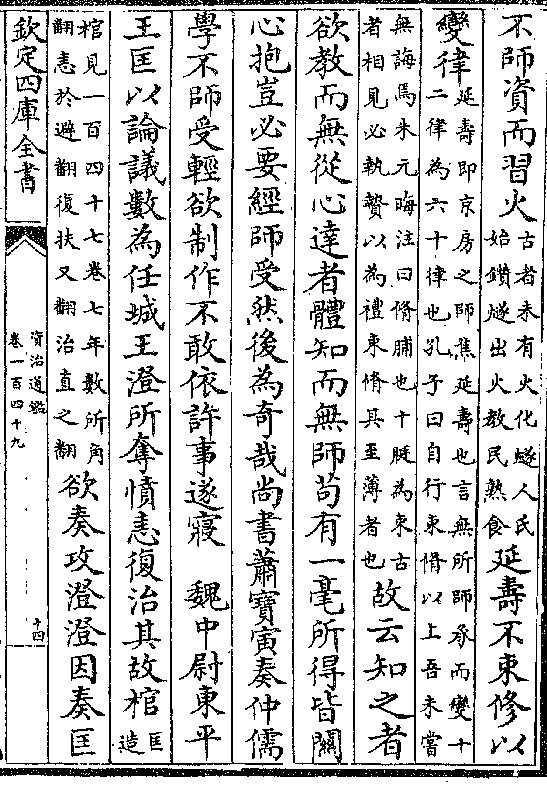 不師資而習火古者未有火化燧人氏
始鑽燧出火教民熟食延壽不束修以
變律延壽即京房之師焦延壽也言無所師承而變十
二律為六十律也孔子曰自行束脩以上吾未嘗
無誨焉朱元晦注曰脩脯也十脡為束古
者相見必執贄以為禮束脩其至薄者也故云知之者
欲教而無從心達者體知而無師苟有一毫所得皆關
心抱豈必要經師受然後為奇哉尚書蕭寶寅奏仲儒
學不師受輕欲制作不敢依許事遂寢　魏中尉東平
王匡以論議數為任城王澄所奪憤恚復治其故棺匡
造
棺見一百四十七卷七年數所角
翻恚於避翻復扶又翻治直之翻欲奏攻澄澄因奏匡
欽定四庫全書
資治通鑑
卷一百四十九
十四